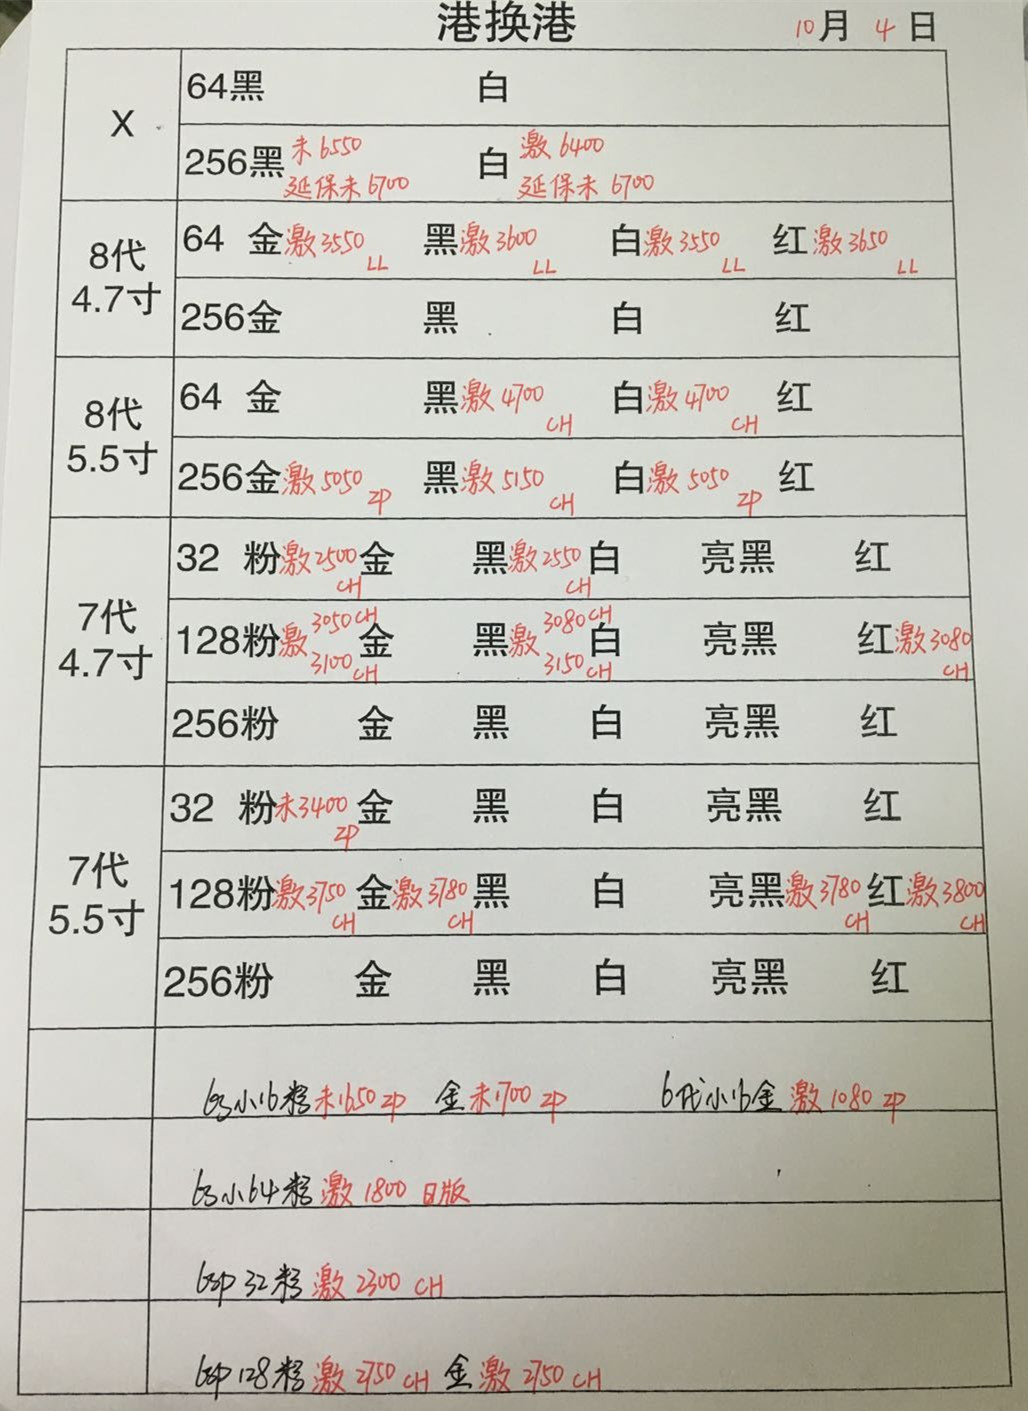 港换港 10月 4 日
X
64黑 白
256黑 未6550 白 激6400
延保未6700 延保未6700
8代
4.7寸
64 金激3550 LL 黑激3600 LL 白激3550 LL 红激3650 LL
256金 黑 白 红
8代
5.5寸
64 金 黑激4700 CH 白激4700 CH 红
256金激5050 ZP 黑激5150 CH 白激5050 ZP 红
7代
4.7寸
32 粉激2500 CH 金 黑激2550 CH 白 亮黑 红
128粉激3050CH 3100CH 金 黑激3080CH 3150CH 白 亮黑 红激3080 CH
256粉 金 黑 白 亮黑 红
7代
5.5寸
32 粉未3400 ZP 金 黑 白 亮黑 红
128粉激3750 CH 金激3780 CH 黑 白 亮黑激3780 CH 红激3800 CH
256粉 金 黑 白 亮黑 红
6s小16粉未1650 ZP 金未1700 ZP 6代小16金激1080 ZP
6s小64粉激1800 日版
6sp 32粉激2300 CH
6sp 128粉激2750 CH 金激2750 CH